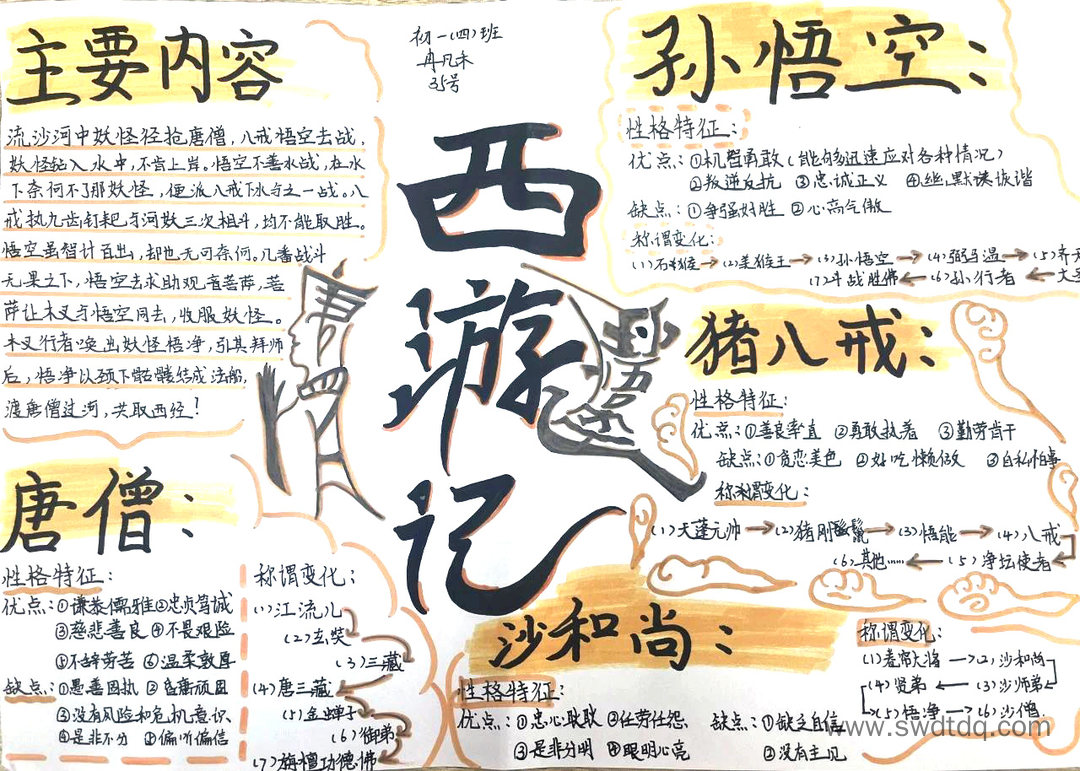 主要内容
流沙河中妖怪径抢唐僧，八戒悟空去战，
妖怪钻入水中，不肯上岸。悟空不善水战，在水
下奈何不了那妖怪，便派八戒下水与之一战。八
戒执九齿钉耙与河妖三次相斗，均不能取胜。
悟空虽智计百出，却也无可奈何。几番战斗
无果之下，悟空去求助观音菩萨，菩
萨让木叉与悟空同去，收服妖怪。
木叉行者唤出妖怪悟净，引其拜师
后，悟净以颈下骷髅结成法船，
渡唐僧过河，共取西经！
初一(四)班
冉凡禾
35号
西游记
孙悟空：
性格特征：
优点：①机智勇敢(能够迅速应对各种情况)
②叛逆反抗 ③忠诚正义 ④幽默诙谐
缺点：①争强好胜 ②心高气傲
称谓变化：
(1)石猴→(2)美猴王→(3)孙悟空→(4)弼马温→(5)齐天
(7)斗战胜佛←(6)孙行者←大圣
猪八戒：
性格特征：
优点：①善良率直 ②勇敢执着 ③勤劳肯干
缺点：①贪恋美色 ②好吃懒做 ③自私怕事
称谓变化：
(1)天蓬元帅→(2)猪刚鬣→(3)悟能→(4)八戒
(6)其他……←(5)净坛使者
唐僧：
性格特征：
优点：①谦恭儒雅②忠贞笃诚
③慈悲善良④不畏艰险
⑤不辞劳苦⑥温柔敦厚
缺点：①愚善固执②盲衡顽固
③没有风险和危机意识
④是非不分⑤偏听偏信
称谓变化：
(1)江流儿
(2)玄奘
(3)三藏
(4)唐三藏
(5)金蝉子
(6)御弟
(7)旃檀功德佛
沙和尚：
性格特征：
优点：①忠心耿耿②任劳任怨
③是非分明④眼明心亮
缺点：①缺乏自信
②没有主见
称谓变化：
(1)卷帘大将→(2)沙和尚
(4)贤弟←(3)沙师弟
→(5)悟净→(6)沙僧
www.swdtdq.com